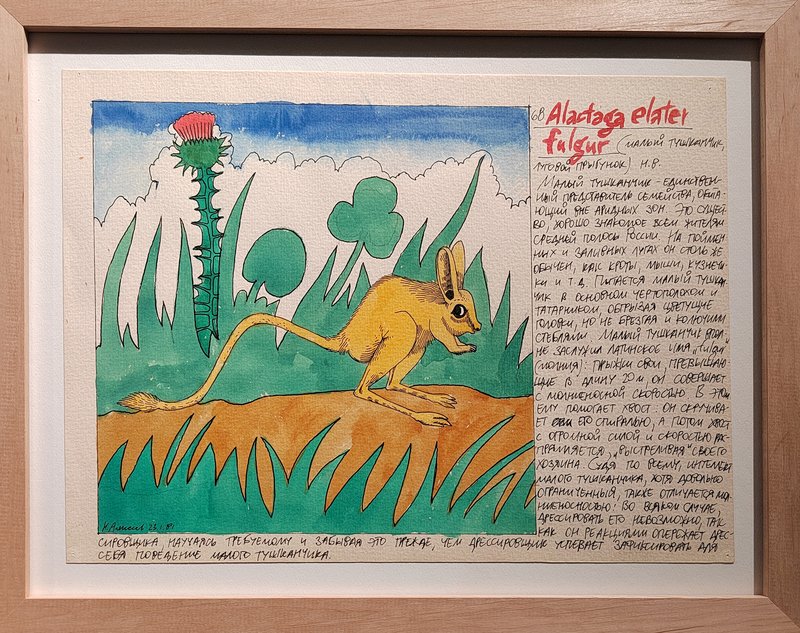 68 Alactaga elater
fulgur (малый тушканчик,
луговой прыгунок). Н.В.
Малый тушканчик - единствен-
ный представитель семейства, обита-
ющий вне аридных зон. Это сущест-
во, хорошо знакомое всем жителям
средней полосы России. На поймен-
ных и заливных лугах он столь же
обычен, как кроты, мыши, кузнечи-
ки и т.д. Питается малый тушкан-
чик в основном чертополохом и
татарником, обгрызая цветущие
головки, но не брезгая и колючими
стеблями. Малый тушканчик
не заслужил латинское имя "fulgur"
(молния): прыжки свои, превышаю-
щие в длину 20 м, он совершает
с молниеносной скоростью. В этом
ему помогает хвост: он скручива-
ет его спирально, а потом хвост
с огромной силой и скоростью рас-
прямляется, "выстреливая" своего
хозяина. Судя по всему, интеллект
малого тушканчика, хотя довольно
ограниченный, также отличается мол-
ниеносностью. Во всяком случае,
дрессировать его невозможно, так
как он реакциями опережает дрес-
сировщика, научаясь требуемому и забывая это прежде, чем дрессировщик успевает зафиксировать для
себя поведение малого тушканчика.
23.1.81